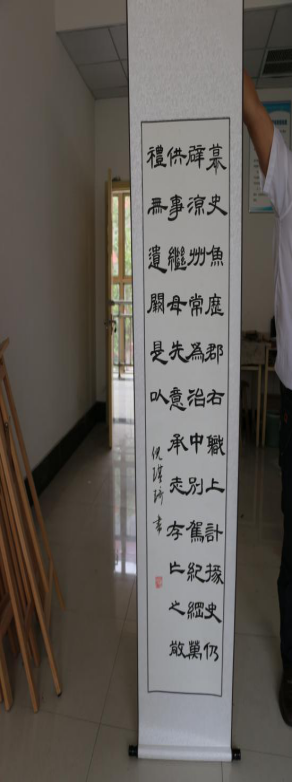 慕史魚歷郡右職上計掾史仍
辟涼州常為治中別駕紀綱萬
供事繼母先意承志存亡之敬
禮無遺闕是以
書